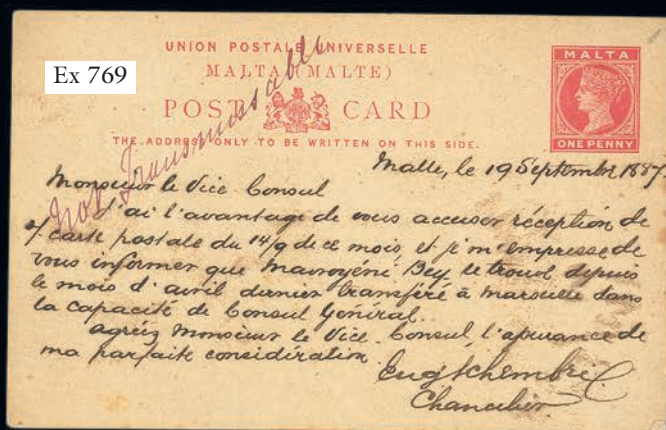 UNION POSTALE UNIVERSELLE
MALTA (MALTE)
Ex 769
POST CARD
THE ADDRESS ONLY TO BE WRITTEN ON THIS SIDE.
MALTA
ONE PENNY
Not Transmissable
Malte, le 19 Septembre 1887
Monsieur le Vice Consul
J'ai l'avantage de vous accuser réception de
carte postale du 14/9 de ce mois, et je m'empresse de
vous informer que Mavroyéni Bey se trouve depuis
le mois d'avril dernier transféré à Marseille dans
la capacité de Consul Général.
agréez Monsieur le Vice Consul, l'assurance de
ma parfaite considération.
Eug Schembri
Chancelier